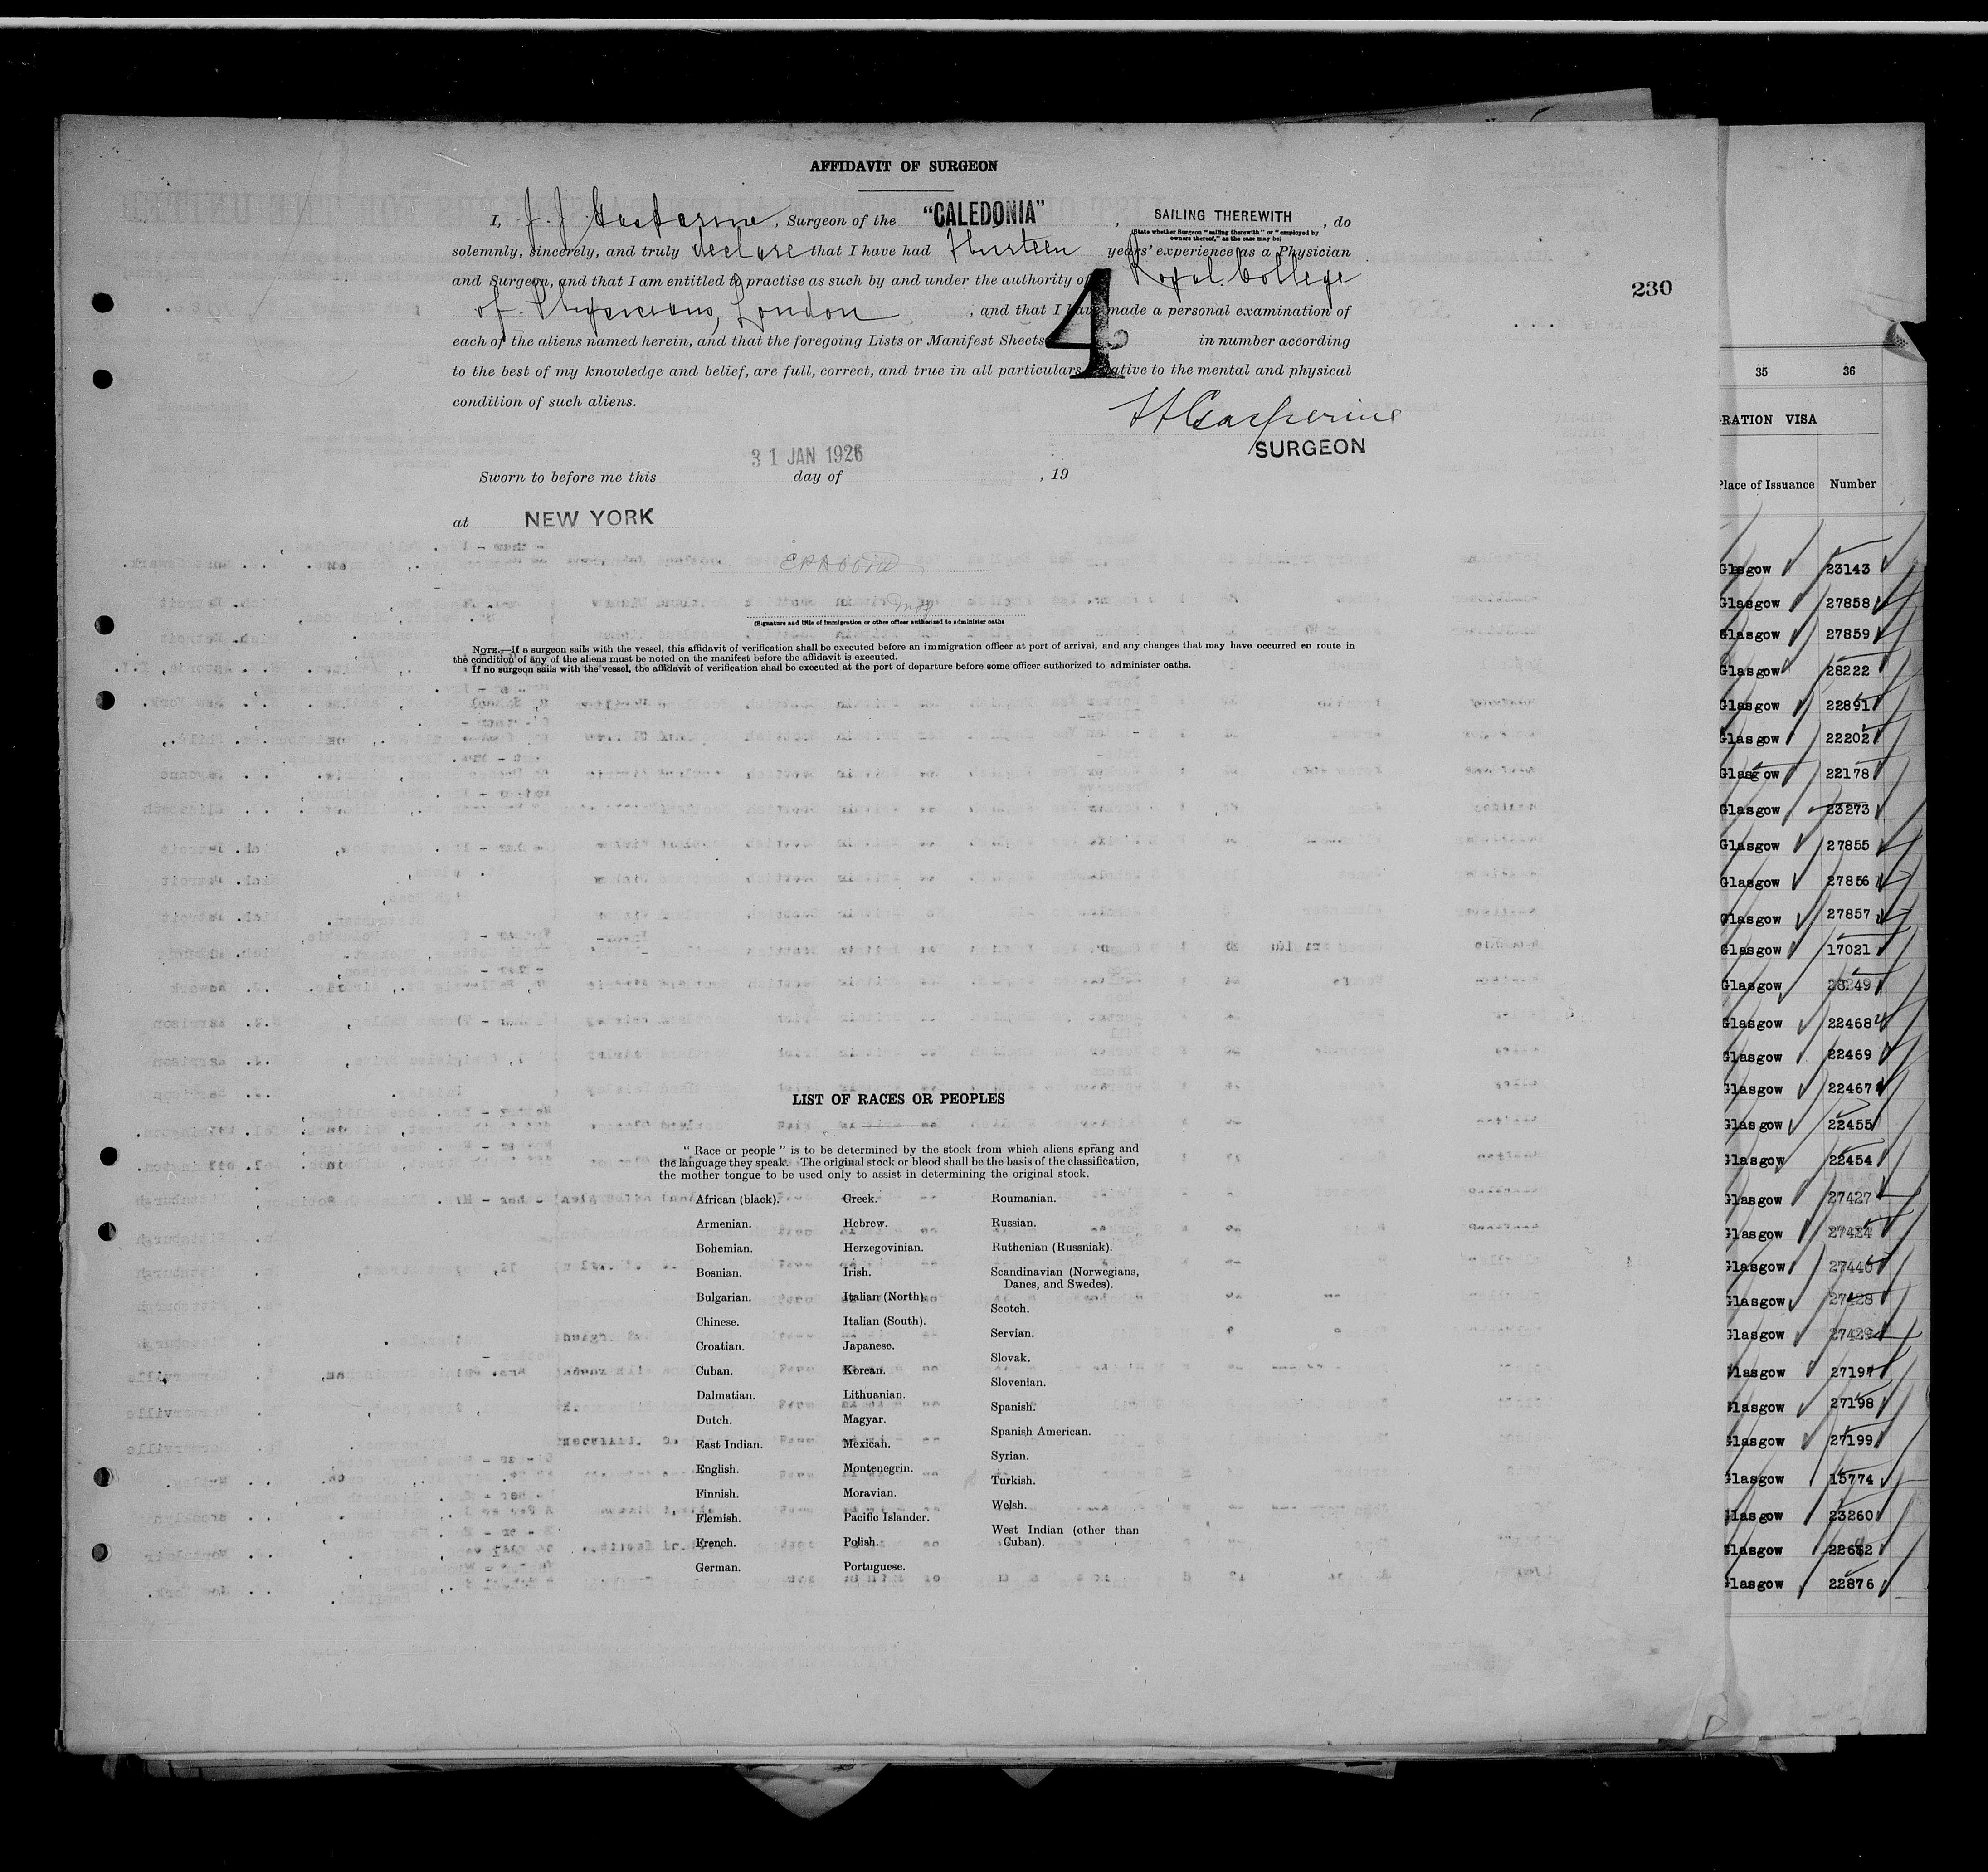 AFFIDAVIT OF SURGEON
I, J. J. , Surgeon of the "CALEDONIA", SAILING THEREWITH, do
(State whether Surgeon "sailing therewith" or "employed by
owners thereof," as the case may be)
solemnly, sincerely, and truly declare that I have had thirteen years' experience as a Physician
and Surgeon, and that I am entitled to practise as such by and under the authority of Royal College
of Physicians, London, and that I have made a personal examination of
each of the aliens named herein, and that the foregoing Lists or Manifest Sheets 4 in number according
to the best of my knowledge and belief, are full, correct, and true in all particulars relative to the mental and physical
condition of such aliens.
SURGEON
31 JAN 1926
Sworn to before me this day of , 19
at NEW YORK
(Signature and title of immigration or other officer authorised to administer oaths
NOTE.—If a surgeon sails with the vessel, this affidavit of verification shall be executed before an immigration officer at port of arrival, and any changes that may have occurred en route in
the condition of any of the aliens must be noted on the manifest before the affidavit is executed.
If no surgeon sails with the vessel, the affidavit of verification shall be executed at the port of departure before some officer authorized to administer oaths.
LIST OF RACES OR PEOPLES
"Race or people" is to be determined by the stock from which aliens sprang and
the language they speak. The original stock or blood shall be the basis of the classification,
the mother tongue to be used only to assist in determining the original stock.
African (black).
Armenian.
Bohemian.
Bosnian.
Bulgarian.
Chinese.
Croatian.
Cuban.
Dalmatian.
Dutch.
East Indian.
English.
Finnish.
Flemish.
French.
German.
Greek.
Hebrew.
Herzegovinian.
Irish.
Italian (North).
Italian (South).
Japanese.
Korean.
Lithuanian.
Magyar.
Mexican.
Montenegrin.
Moravian.
Pacific Islander.
Polish.
Portuguese.
Roumanian.
Russian.
Ruthenian (Russniak).
Scandinavian (Norwegians,
Danes, and Swedes).
Scotch.
Servian.
Slovak.
Slovenian.
Spanish.
Spanish American.
Syrian.
Turkish.
Welsh.
West Indian (other than
Cuban).
230
35 36
RATION VISA
Place of Issuance Number
Glasgow 23143
Glasgow 27858
Glasgow 27859
Glasgow 28222
Glasgow 22891
Glasgow 22202
Glasgow 22178
Glasgow 23273
Glasgow 27855
Glasgow 27856
Glasgow 27857
Glasgow 17021
Glasgow 28249
Glasgow 22468
Glasgow 22469
Glasgow 22467
Glasgow 22455
Glasgow 22454
Glasgow 27427
Glasgow 27424
Glasgow 27440
Glasgow 27428
Glasgow 27429
Glasgow 27197
Glasgow 27198
Glasgow 27199
Glasgow 15774
Glasgow 23260
Glasgow
Glasgow 22876